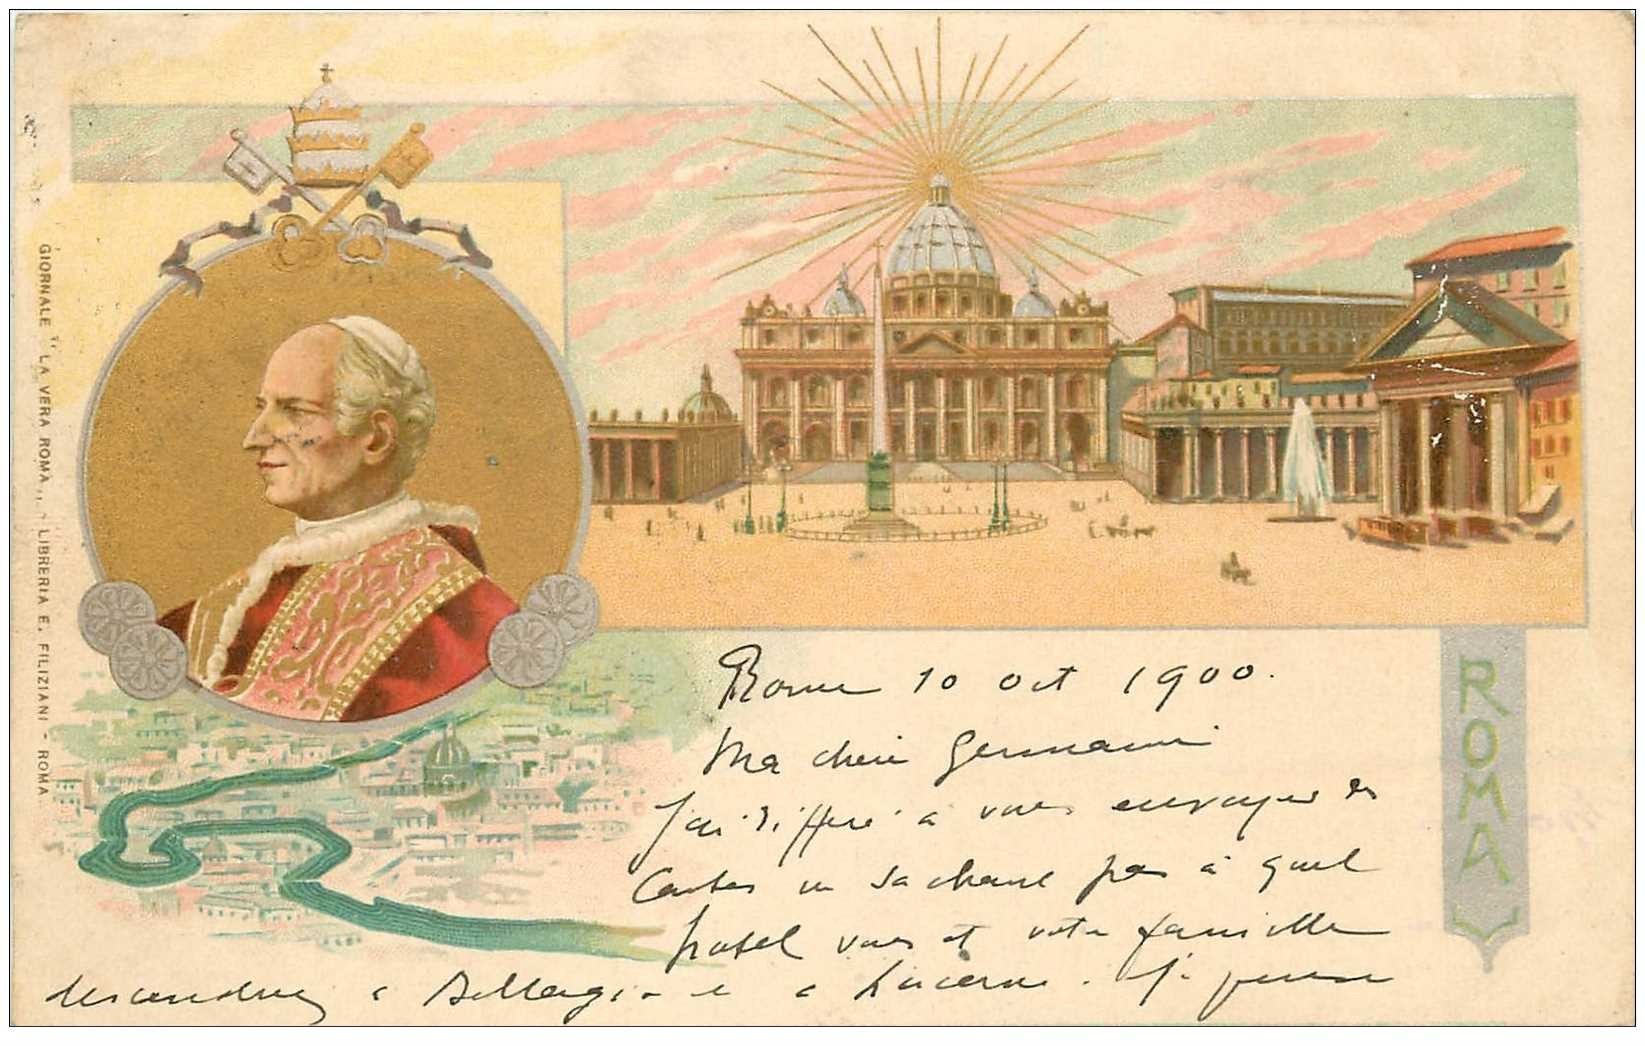 GIORNALE "LA VERA ROMA,, - LIBRERIA E. FILIZIANI - ROMA
ROMA
Rome 10 Oct 1900.
Ma chère Germaine
J'ai différé à vous envoyer des
Cartes ne sachant pas à quel
hotel vous et votre famille
descendrez à Bellagio et à Lucerne. Je pense